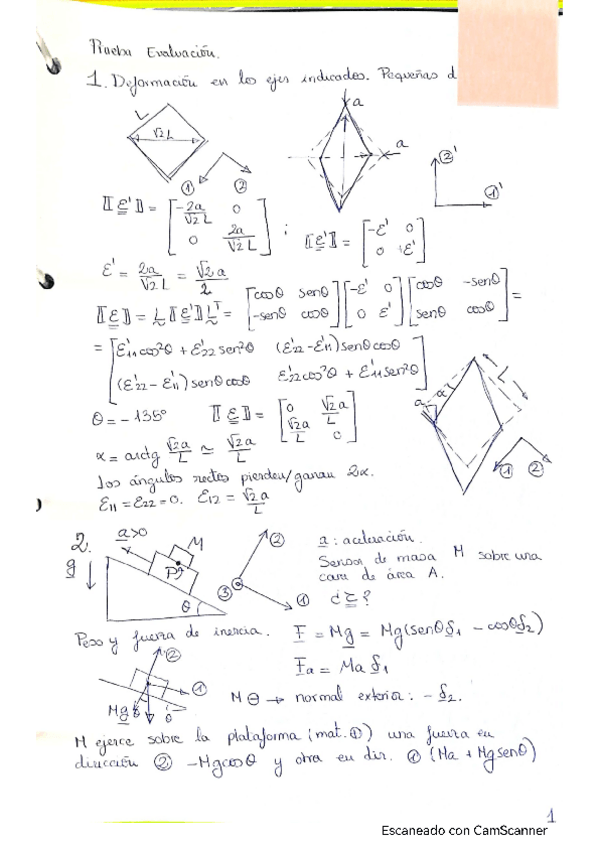 Prueba Evaluación.
1. Deformación en los ejes indicados. Pequeñas d
L
√2 L
① ②
a
a
②'
①'
⟦ε'⟧ = [-2a/√2L 0; 0 2a/√2L] ; ⟦ε'⟧ = [-ε' 0; 0 ε']
ε' = 2a/√2L = √2a/2
⟦ε⟧ = L⟦ε'⟧Lᵀ = [cosθ senθ; -senθ cosθ] [-ε' 0; 0 ε'] [cosθ -senθ; senθ cosθ] =
= [ε'11cos²θ + ε'22sen²θ (ε'22 - ε'11)senθcosθ; (ε'22 - ε'11)senθcosθ ε'22cos²θ + ε'11sen²θ]
θ = -135° ⟦ε⟧ = [0 √2a/L; √2a/L 0]
α = arctg √2a/L ≃ √2a/L
a α L
① ②
Los ángulos rectos pierden/ganan 2α.
ε11 = ε22 = 0. ε12 = √2a/L
2. a>0 M
g ↓
θ
② ③ ①
a: aceleración.
Sensor de masa M sobre una
cara de área A.
¿σ?
Peso y fuerza de inercia. F = Mg = Mg(senθf1 - cosθf2)
Fa = Maf1
② ①
Mg θ
M ⊖ → normal exterior: -f2.
M ejerce sobre la plataforma (mat. ①) una fuerza en
dirección ② -Mgcosθ y otra en dir. ① (Ma + Mgsenθ)
1
Escaneado con CamScanner